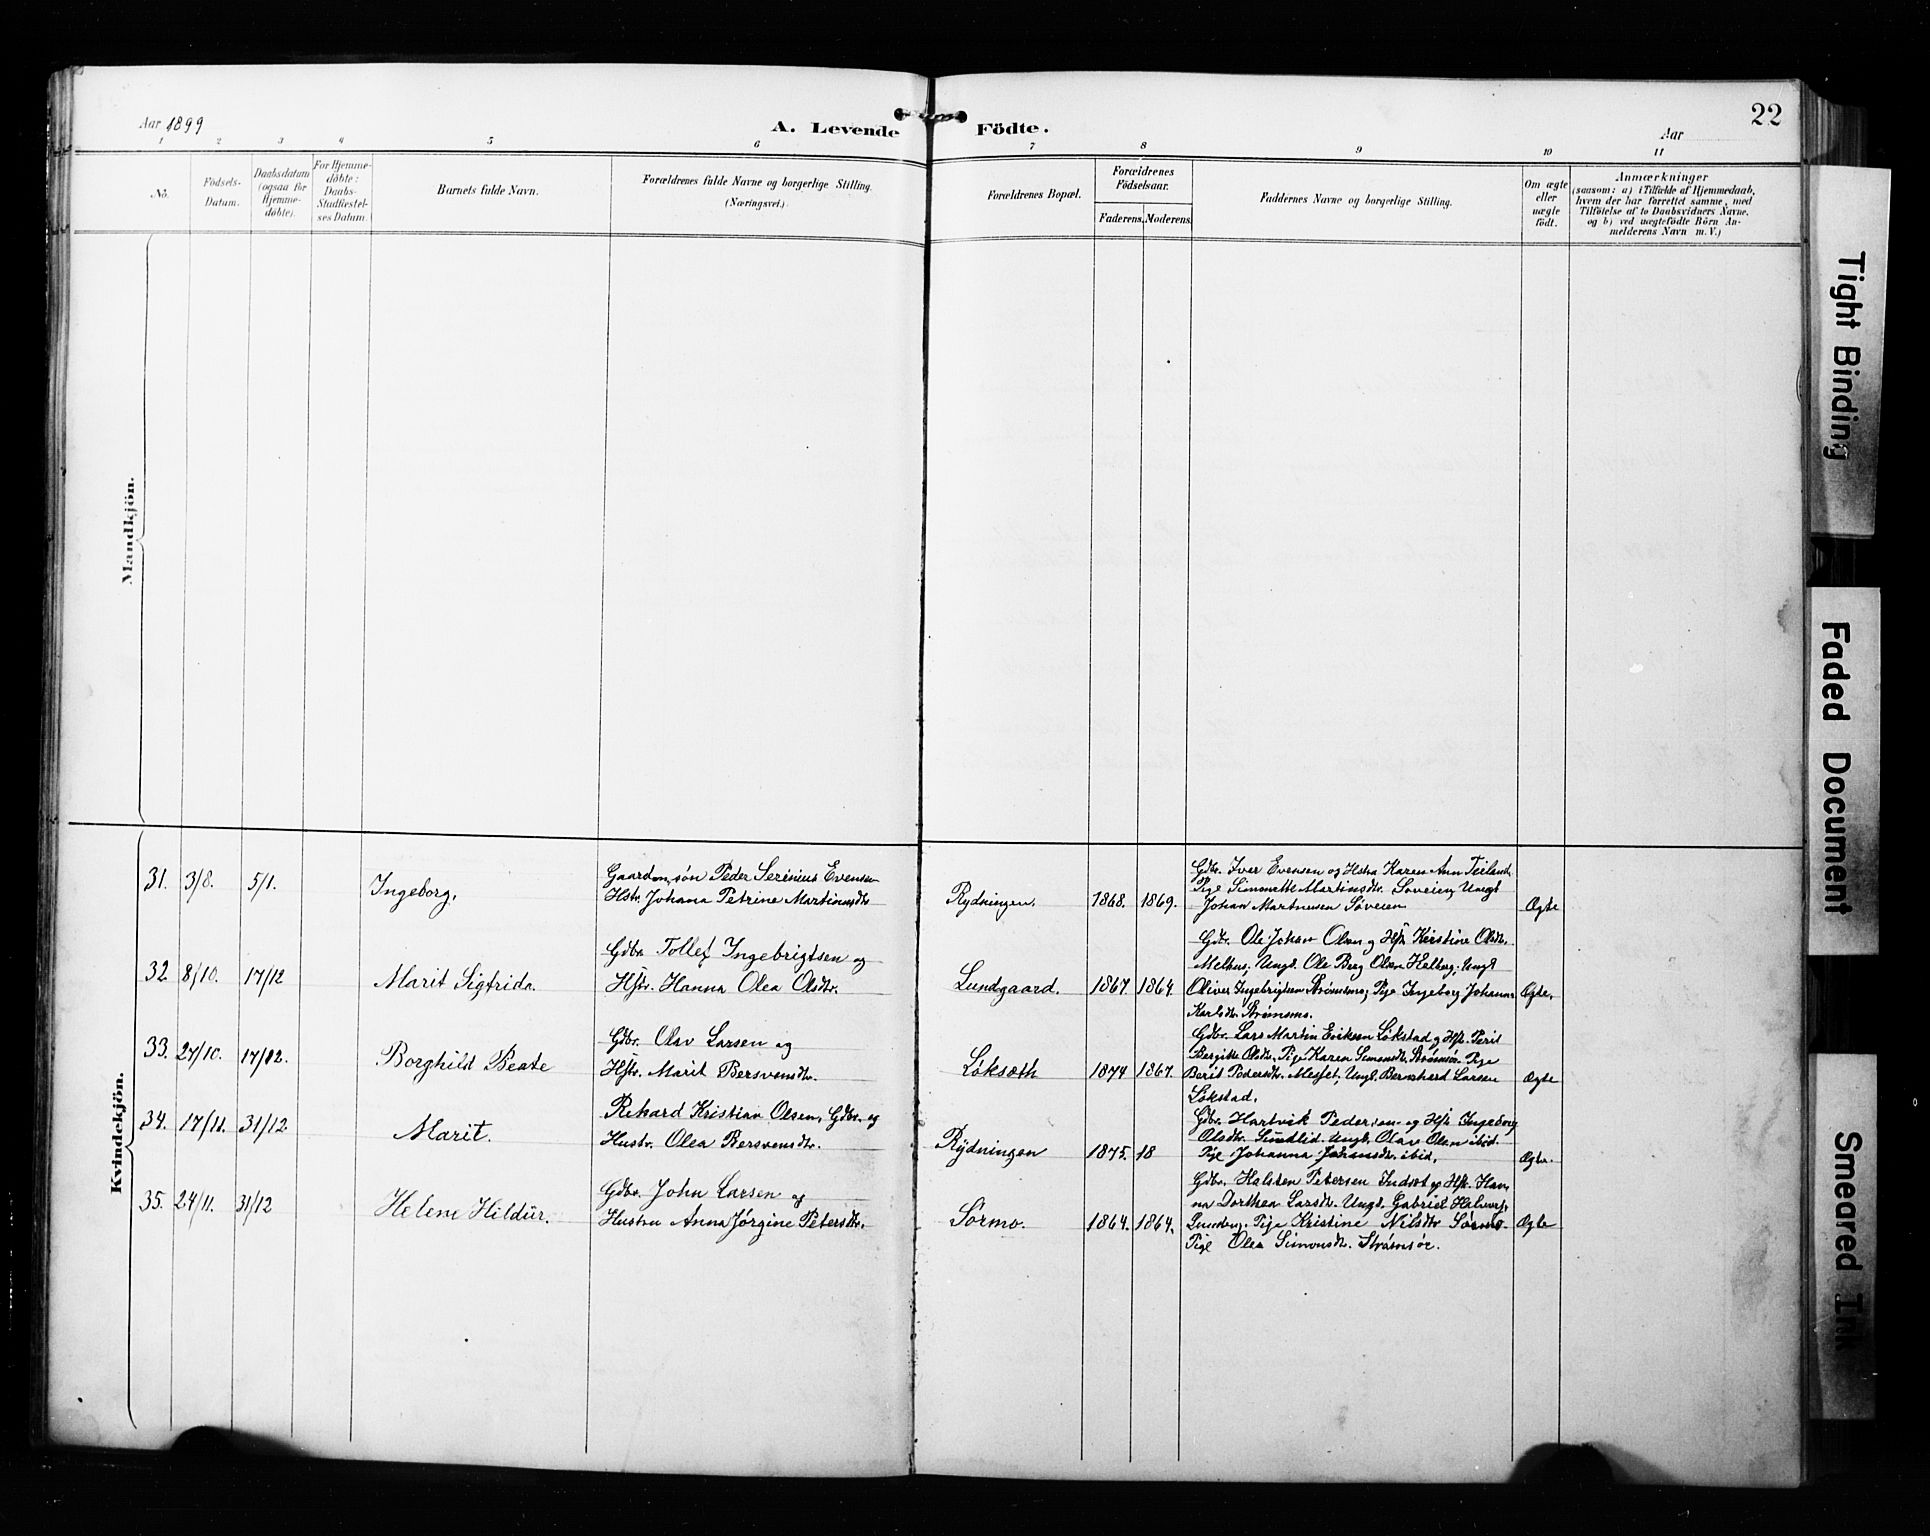 Aar 1899
A. Levende Födte.
Aar
22
1 2 3 4 5 6 7 8 9 10 11
No.
Födsels-
Datum.
Daabsdatum
(ogsaa for
Hjemme-
döbte).
For Hjemme-
döbte:
Daabs-
Stadfæstel-
ses Datum.
Barnets fulde Navn.
Forældrenes fulde Navne og borgerlige Stilling.
(Næringsvei.)
Forældrenes Bopæl.
Forældrenes
Födselsaar.
Faderens. Moderens.
Faddernes Navne og borgerlige Stilling.
Om ægte
eller
uægte
födt.
Anmærkninger
(saasom: a) i Tilfælde af Hjemmedaab,
hvem der har forrettet samme, med
Tilföielse af to Daabsvidners Navne,
og b) ved uægtefödte Börn An-
melderens Navn m. V.)
Mandkjön.
Kvindekjön.
31. 3/8. 5/1. Ingeborg.
Gaardm. søn Peder Serinius Evensen
Hstr. Johana Petrine Martinusdtr
Rydningen. 1868. 1869.
Gdbr. Iver Evensen og Hstru Karen Ann
Pige Martinsdtr. Ungk
Johan Martinusen Søveien
Ægte
32. 8/10. 17/12 Marit Sigfrida.
Gdbr. Tollef Ingebrigtsen og
Hstr. Hanna Olea Olsdtr.
Lundgaard. 1867. 1864.
Gdbr. Ole Johan Olsen og Hstr Kirstine Olsdtr.
Melhus; Ungk. Ole Berg Olsen Ungk
Oliver Ingebrigtsen Strømsmo; Pige Ingeborg Johanna
Karlsdtr. Strømsmo.
Ægte.
33. 27/10. 17/12. Borghild Beate
Gdbr. Olav Larsen og
Hstr. Marit Bersvensdtr.
Løksæth 1874 1867.
Gdbr. Lars Martin Eriksen Løkstad og Hstr. Berit
Bergitte Olsdtr, Pige Karen Simonsdtr. Strømsør Pige
Berit Pedersdtr. Ungk. Bernhard Larsen
Løkstad.
Ægte
34. 17/11. 31/12. Marit.
Rikard Kristian Olsen, Gdbr. og
Hustr. Olea Bersvensdtr.
Rydningen 1875. 18
Gdbr. Hartvik Pedersen og Hstr Ingeborg
Olsdtr. Sundlid. Ungk. Olav Olsen ibid.
Pige Johanna Johansdtr. ibid.
Ægte.
35. 24/11. 31/12 Helene Hildur.
Gdbr. John Larsen og
Hustru Anna Jørgine Petersdtr.
Sørmo. 1864. 1864.
Gdbr. Halsten Petersen Indset og Hstr. Han-
na Dorthea Larsdtr. Ungk. Gabriel
Pige Kristine Nilsdtr Sørmo
Pige Olea Simonsdtr. Strømsør.
Ægte
Tight Binding
Faded Document
Smeared Ink